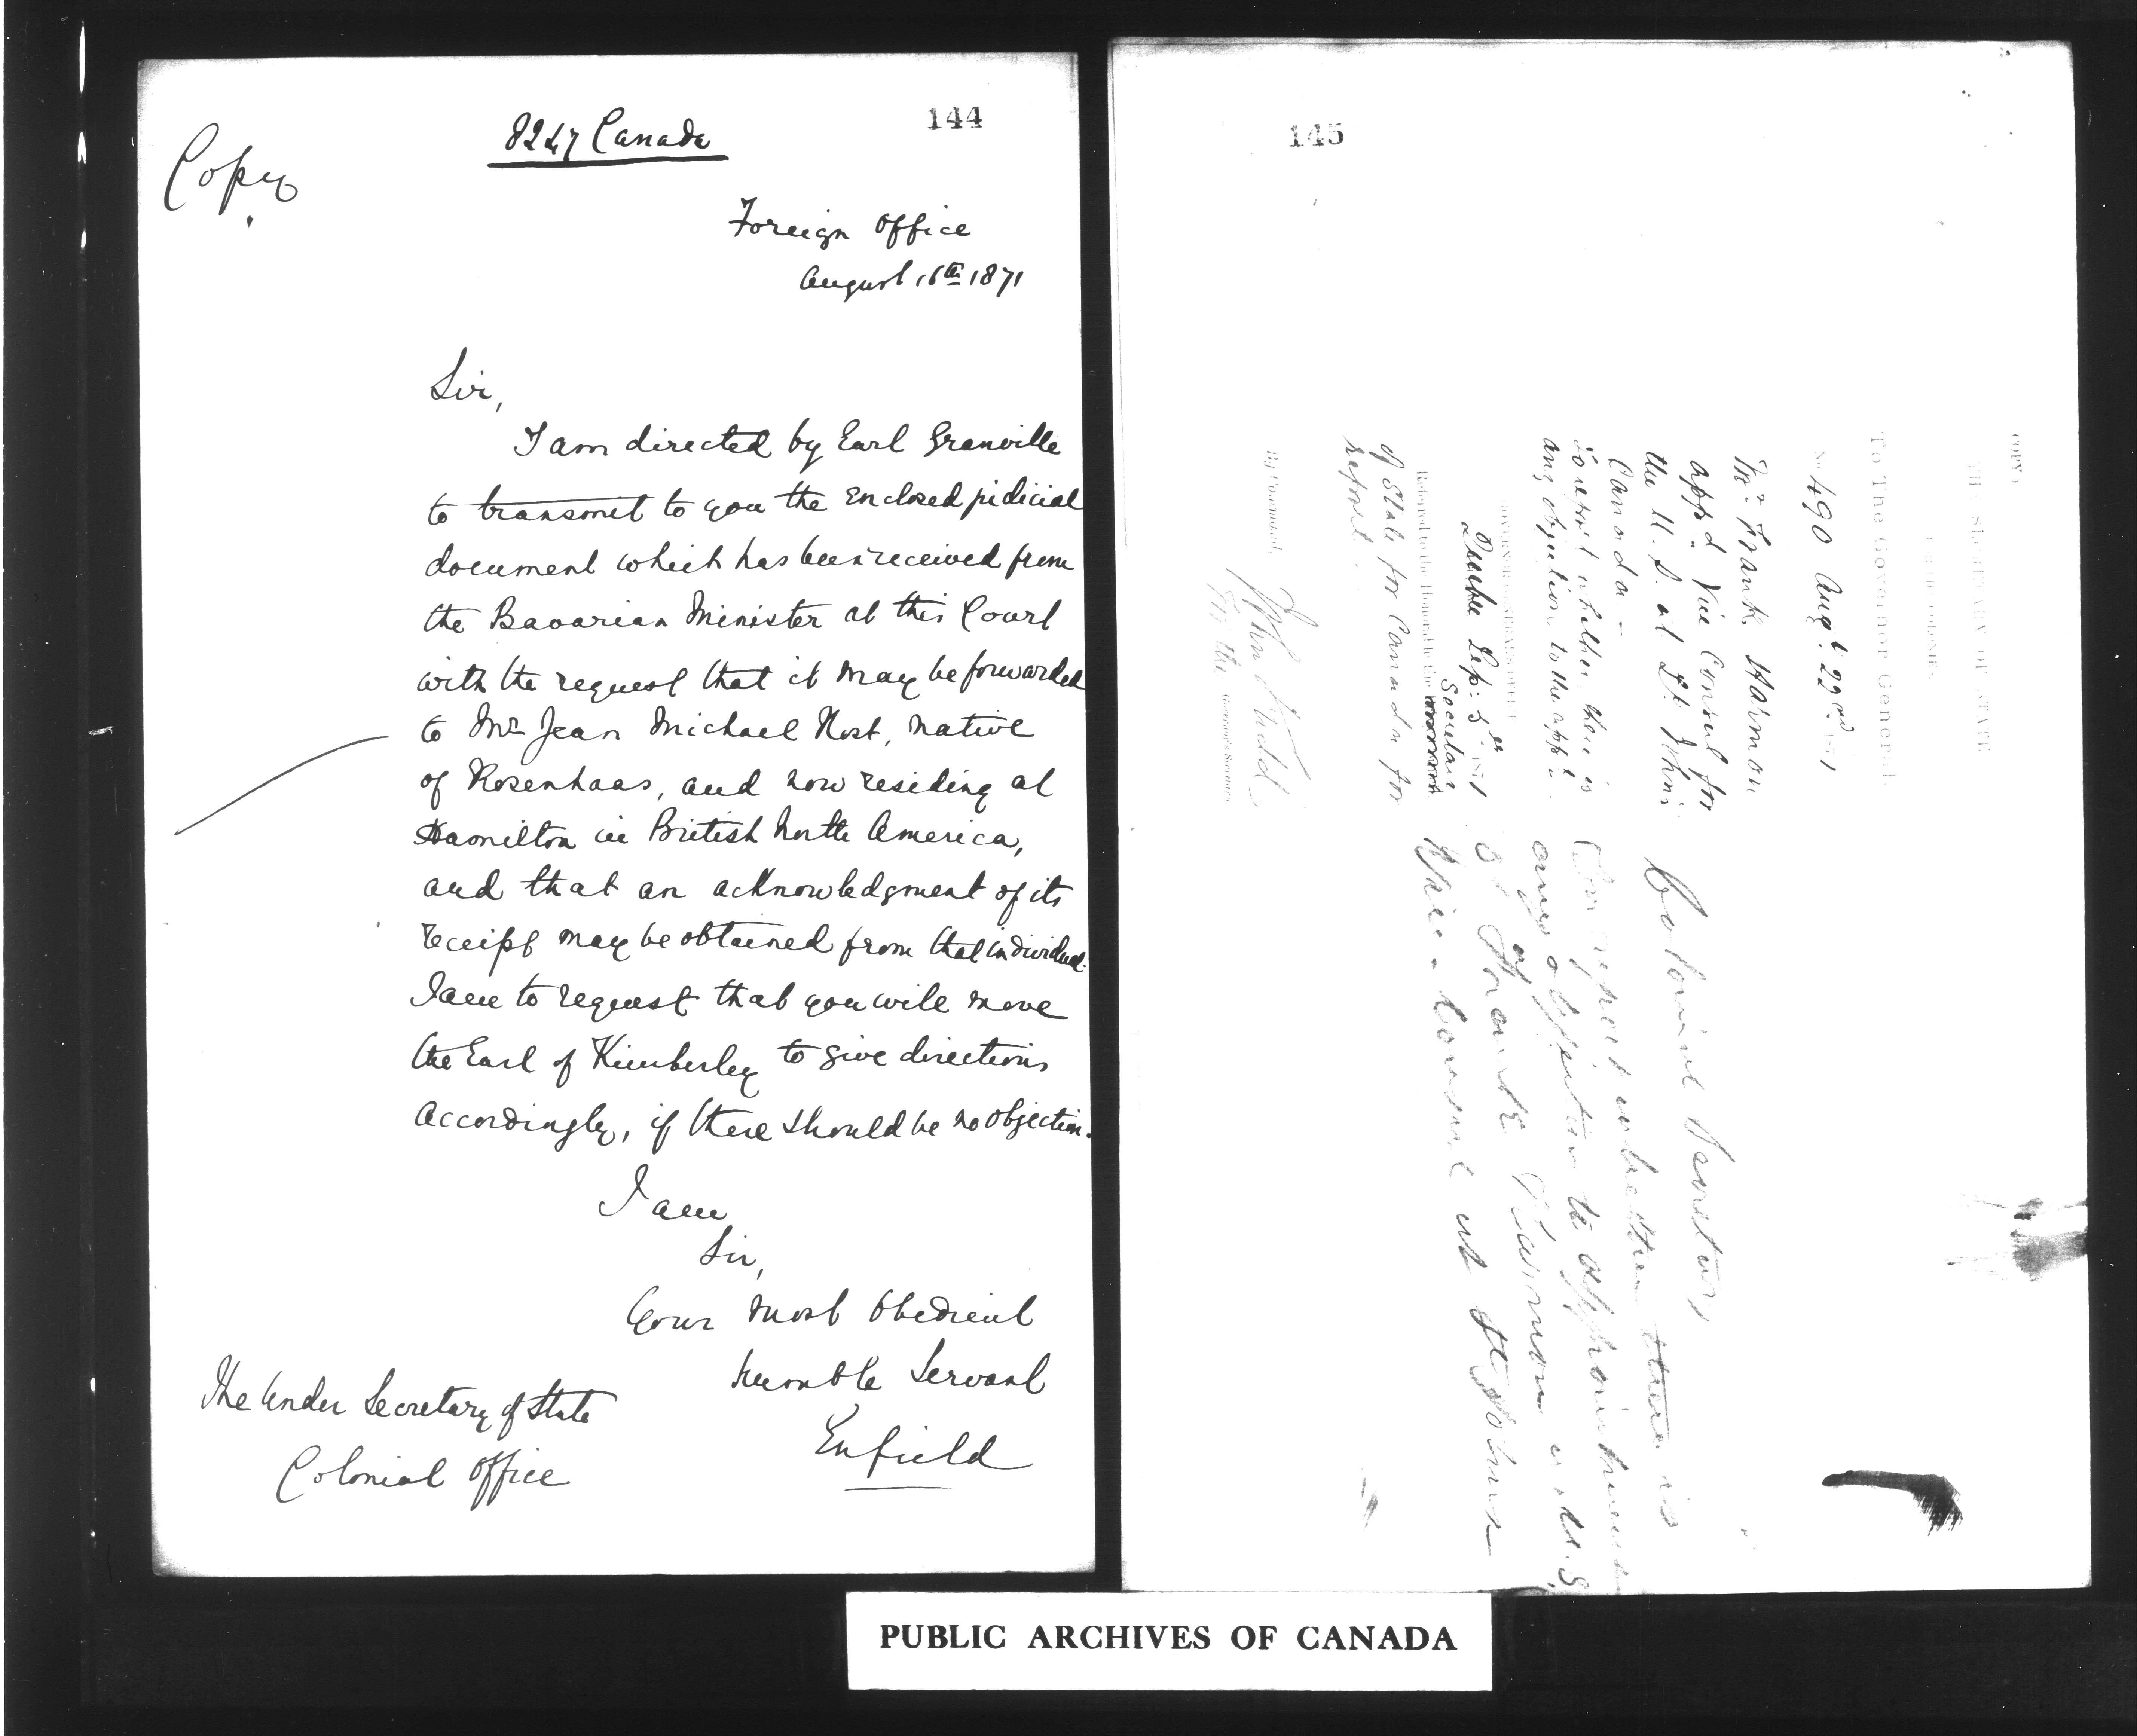 144
8247 Canada
Copy
Foreign Office
August 16th 1871
Sir,
I am directed by Earl Granville
to transmit to you the enclosed judicial
document which has been received from
the Bavarian Minister at this Court
with the request that it may be forwarded
to Mr Jean Michael Nost, native
of Rosenhaas, and now residing at
Hamilton in British North America,
and that an acknowledgment of its
receipt may be obtained from that individual.
I am to request that you will move
the Earl of Kimberley to give directions
accordingly, if there should be no objection.
I am
Sir,
Your most obedient
humble Servant
Enfield
The Under Secretary of State
Colonial Office
145
COPY
THE SECRETARY OF STATE
To The Governor General
No. 490 Augt. 22nd 1871
Mr Frank Harmon
appd Vice Consul for
the U.S. at St Johns
Canada -
To report whether there is
any objection to the appt.
Quebec Sep: 1871
Referred to the Honorable the
Secretary
of State for Canada for
report.
By Command,
For the Governor's Secretary
Colonial Secretary
To report whether there is
any objection to appointment
of Frank Harmon as U.S.
Vice-Consul at St Johns
PUBLIC ARCHIVES OF CANADA